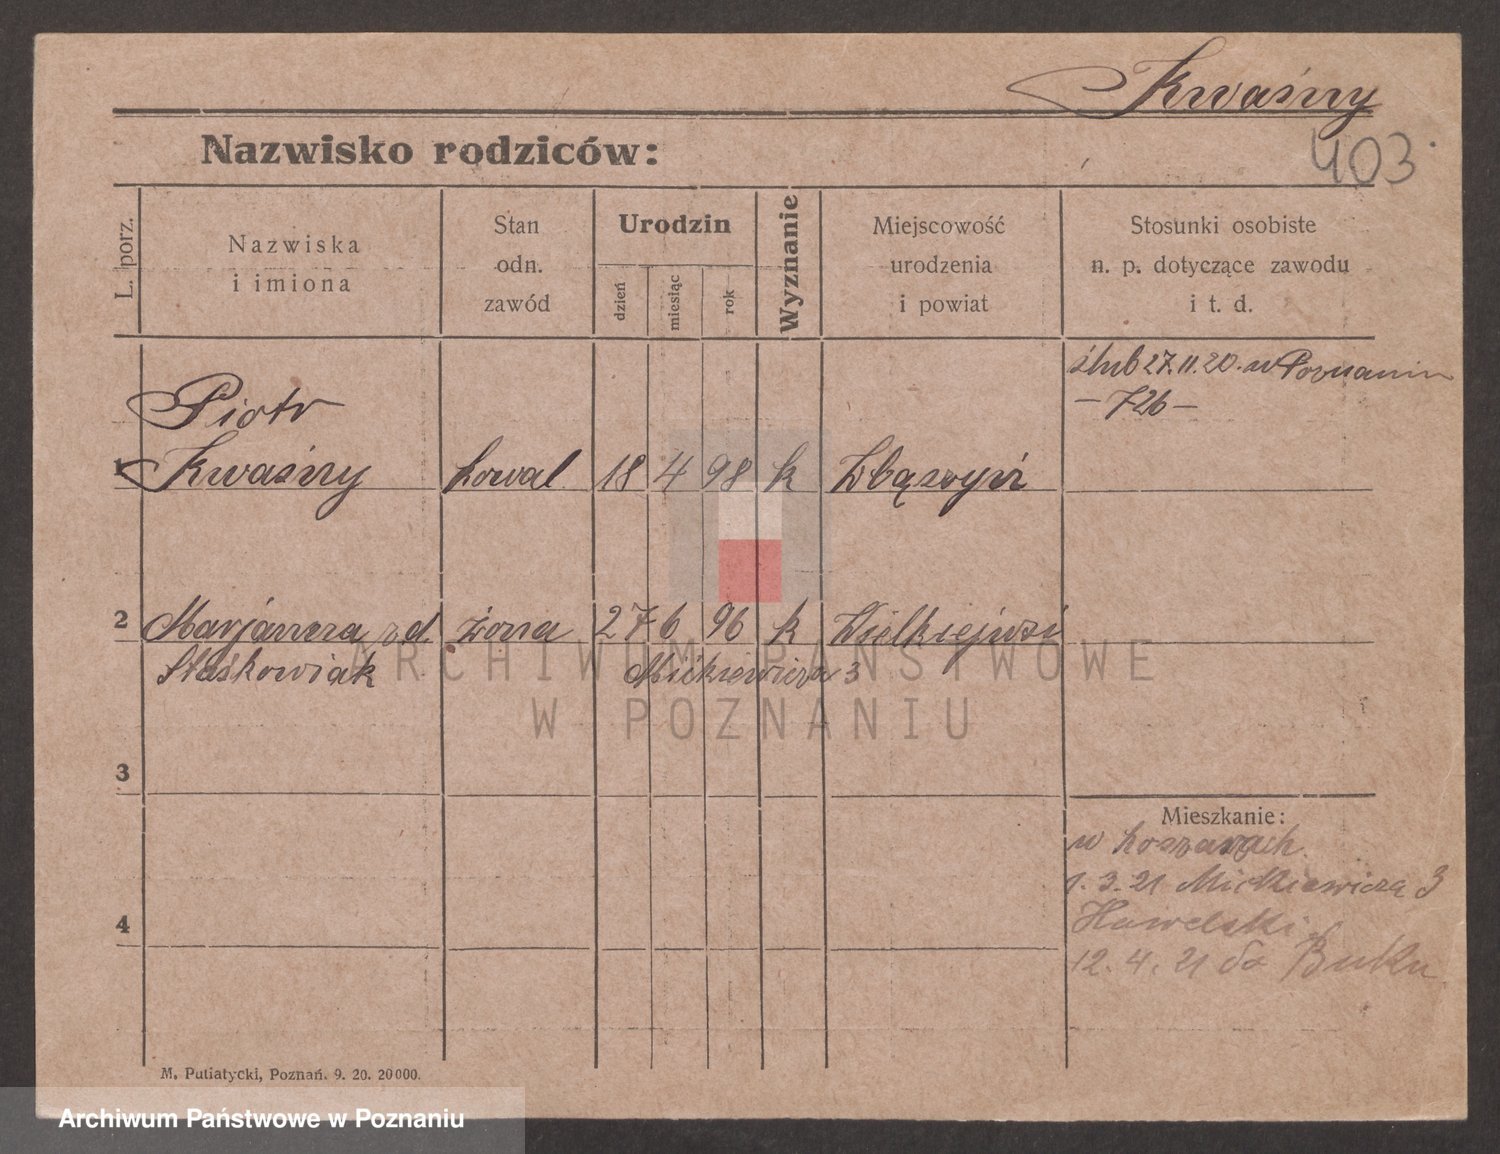 Kwaśny
403
Nazwisko rodziców:
L. porz.
Nazwiska
i imiona
Stan
odn.
zawód
Urodzin
dzień
miesiąc
rok
Wyznanie
Miejscowość
urodzenia
i powiat
Stosunki osobiste
n. p. dotyczące zawodu
i t. d.
ślub 27.11.20. w Poznaniu
- 726 -
Piotr
1 Kwaśny kowal 18 4 98 k Zbąszyń
2 Marjanna z d. żona 27 6 96 k Wielkiejwsi
Staśkowiak Mickiewicza 3
3
Mieszkanie:
w koszarach
1.3.21 Mickiewicza 3
Hawelski
4
12.4.21 do Buku
M. Putiatycki, Poznań. 9. 20. 20000.
ARCHIWUM PAŃSTWOWE
W POZNANIU
Archiwum Państwowe w Poznaniu